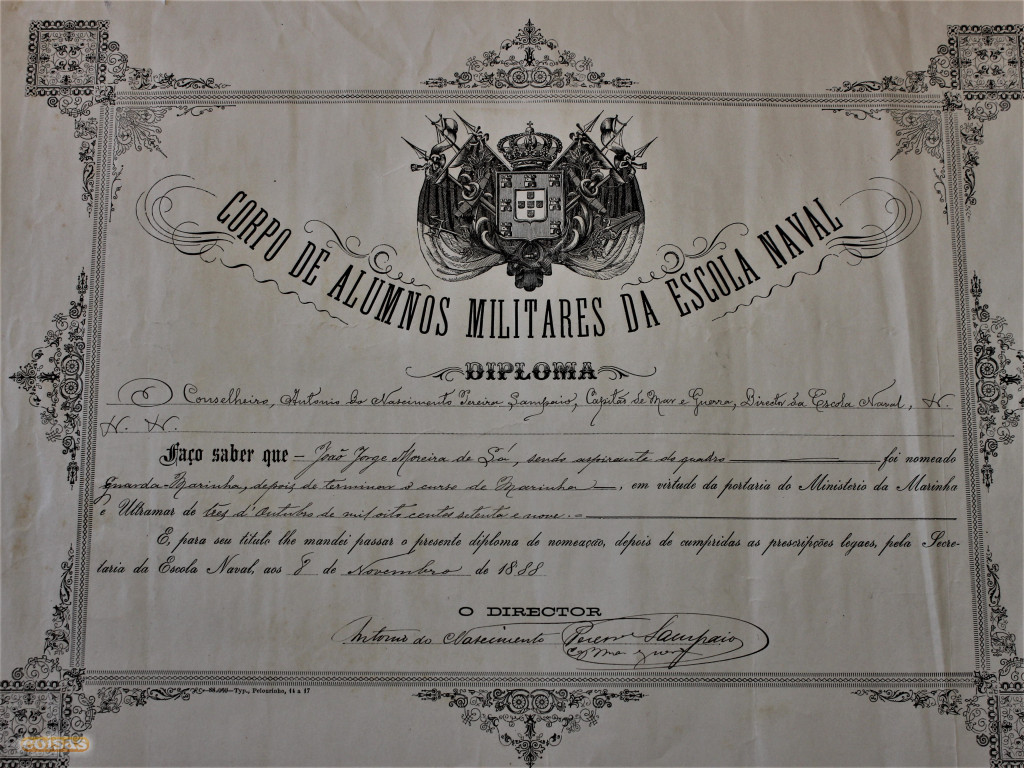 CORPO DE ALUMNOS MILITARES DA ESCOLA NAVAL
DIPLOMA
O Conselheiro, Antonio do Nascimento Pereira Sampaio, Capitão de Mar e Guerra, Director da Escola Naval, &.
&. &.
Faço saber que João Jorge Moreira de Sá, sendo aspirante do quadro foi nomeado
Guarda-Marinha, depois de terminar o curso de Marinha, em virtude da portaria do Ministerio da Marinha
e Ultramar de tres d'Outubro de mil oito centos setenta e nove.
E, para seu titulo lhe mandei passar o presente diploma de nomeação, depois de cumpridas as prescripções legaes, pela Secre-
taria da Escola Naval, aos 8 de Novembro de 1888
O DIRECTOR
Antonio do Nascimento Pereira Sampaio
Typ., Pelourinho, 14 a 17
coisas